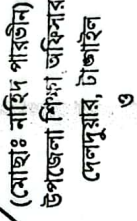 (মোছাঃ নাহিদ পারভীন)
উপজেলা শিক্ষা অফিসার
দেলদুয়ার, টাঙ্গাইল
ও